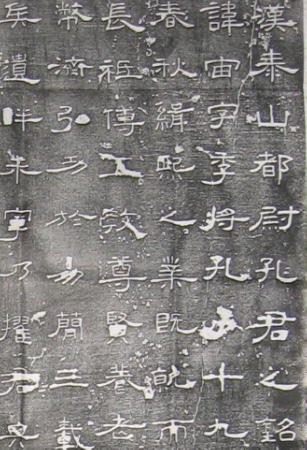 漢泰山都尉孔君之銘
諱宙字季將孔子十九
春秋緝熙之業既就而
長祗傅五教尊賢養老
幣濟弘功於易簡三載
兵遺畔未寧乃擢君典